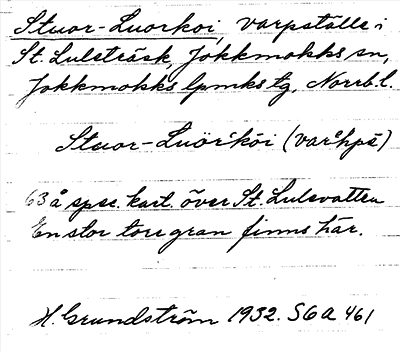 Stuor-Luorkoi, varpställe i
St. Luleträsk, Jokkmokks sn,
Jokkmokks lpmks tg, Norrb. l.
Stuor-Luörkoi (varhpē)
63 å spec. kart. över St. Lulevatten
En stor torr gran finns här.
H. Grundström 1932. S6a 461